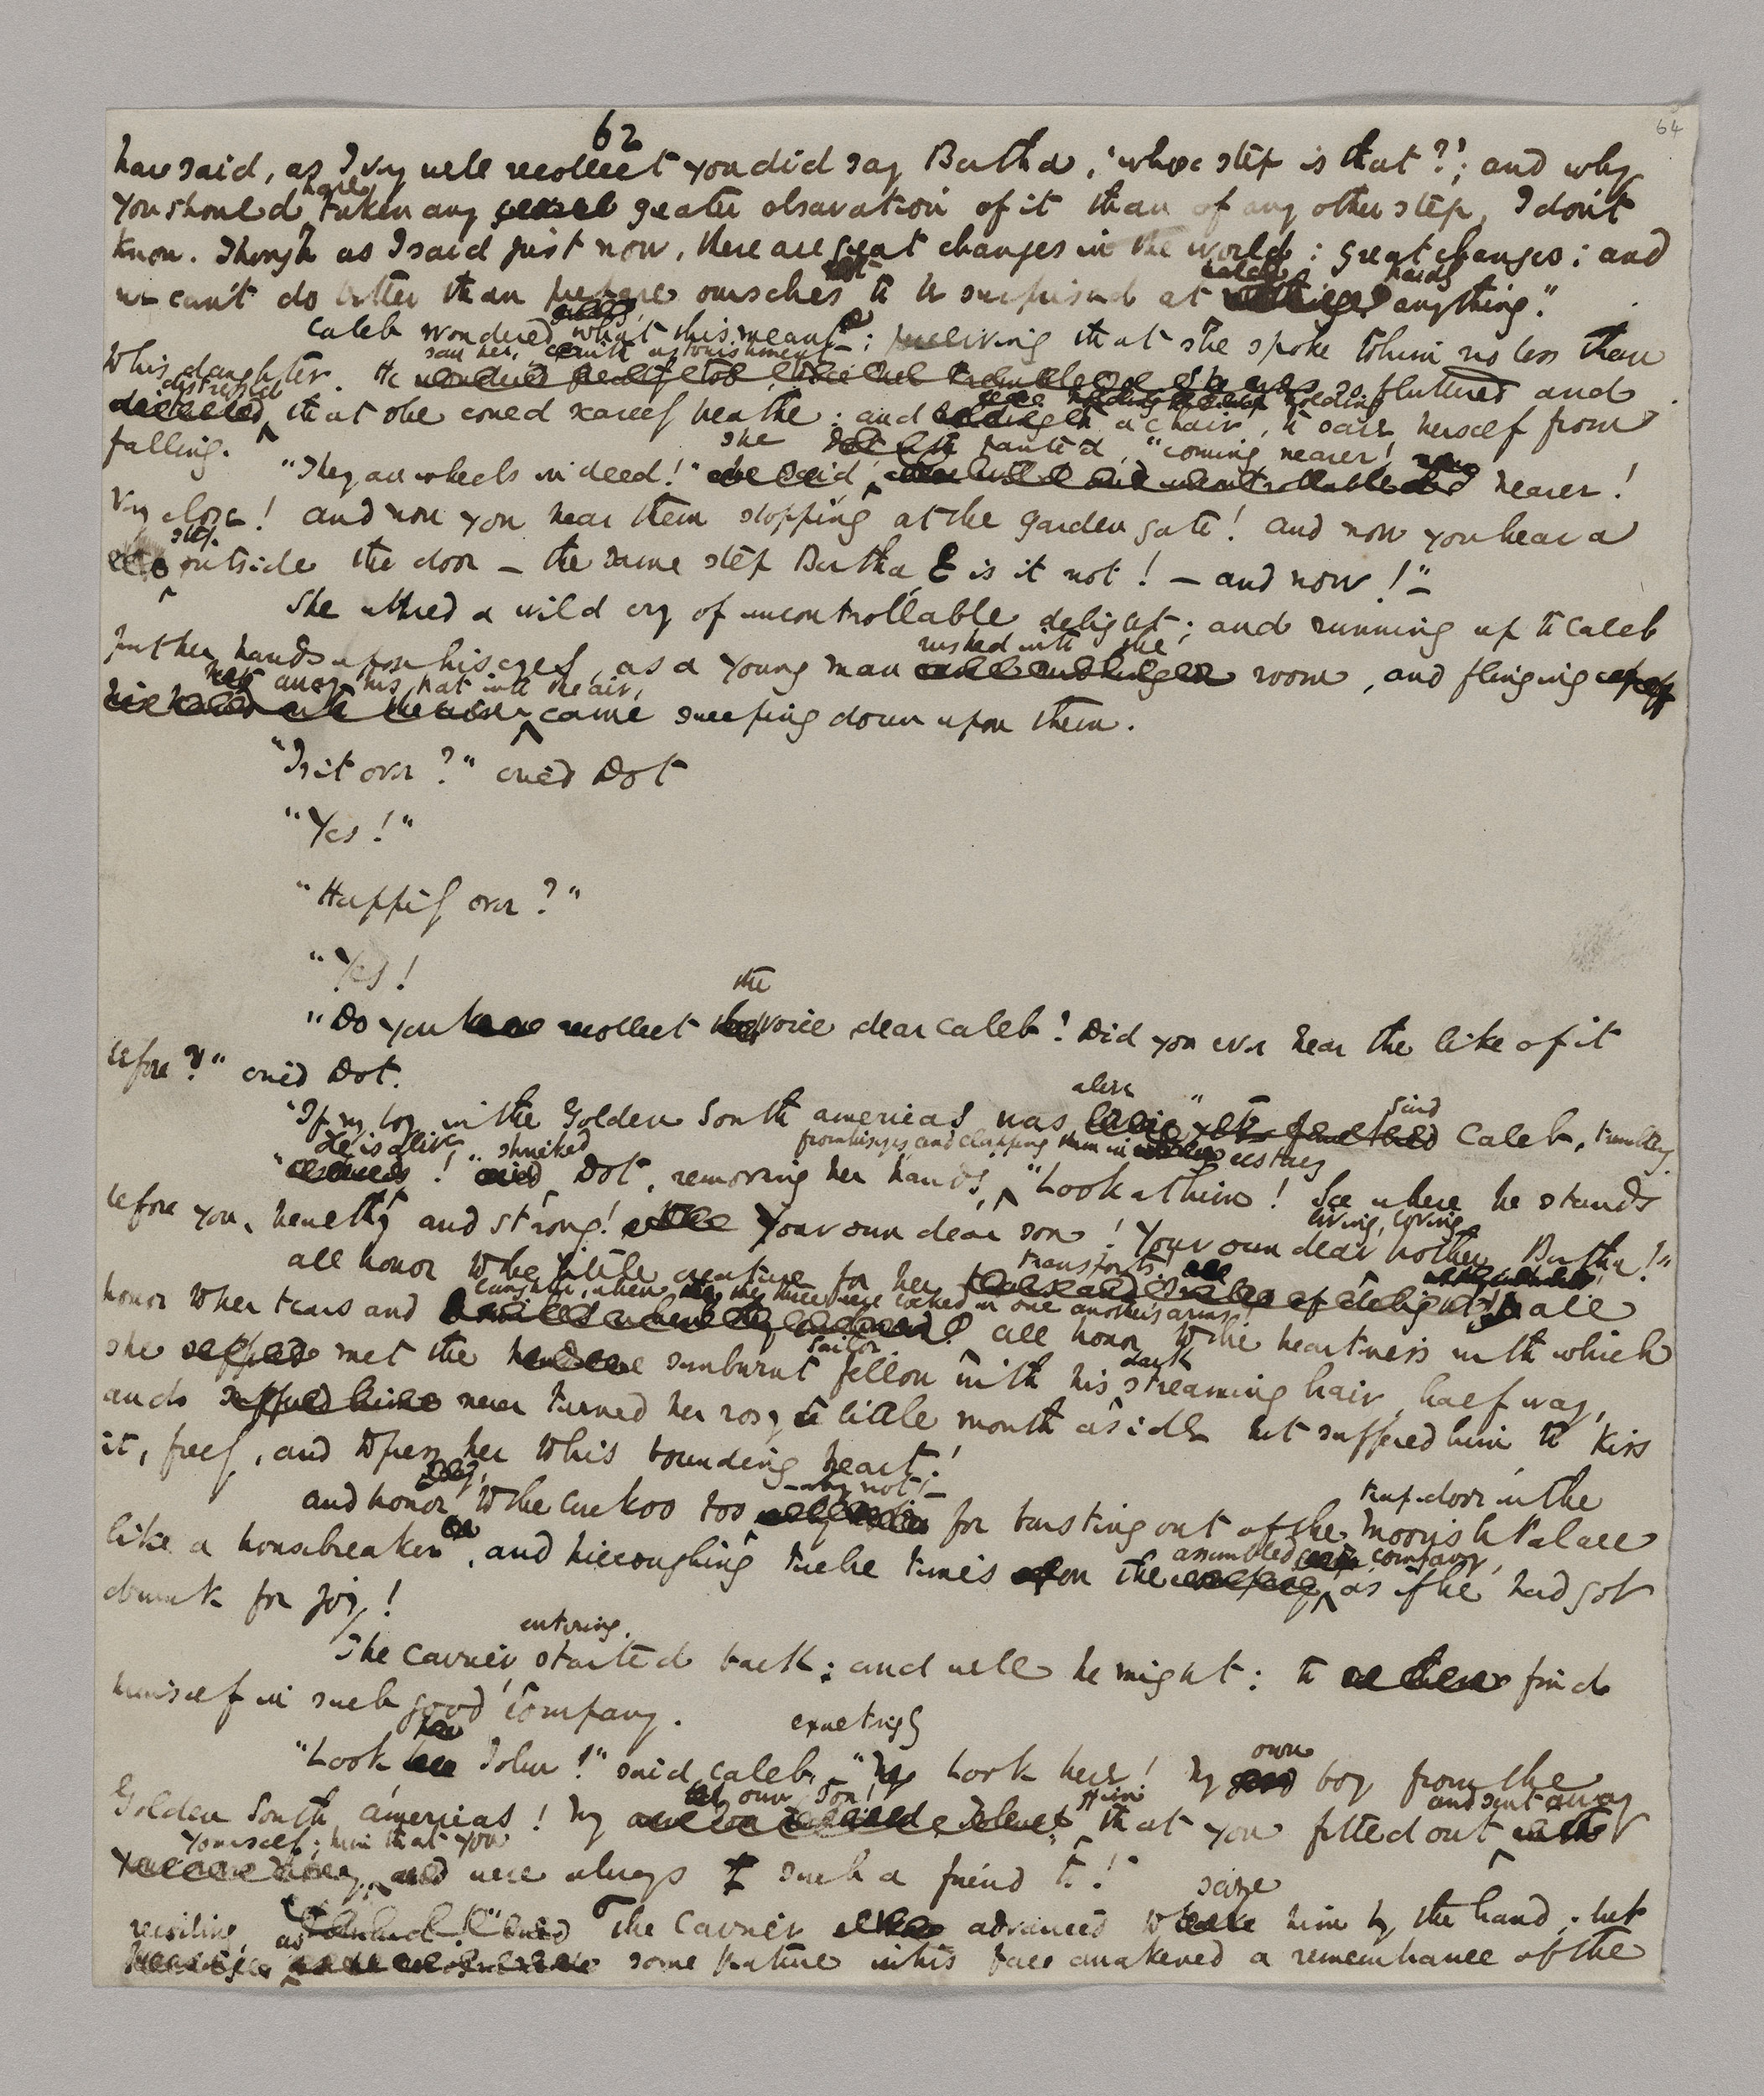 62
64
have said, as I very well recollect you did say Bertha, 'whose step is that?'; and why
you should have taken any greater observation of it than of any other step, I don't
know. Though as I said just now, there are great changes in the world: great changes: and
we can't do better than prepare ourselves to be surprised at hardly anything."
Caleb wondered what this meant; perceiving that she spoke to him no less than
to his daughter. He saw her, with astonishment, so fluttered and
distressed that she could scarcely breathe: and holding to a chair, to save herself from
falling.
"They are wheels indeed!" she panted, "coming nearer! nearer!
Very close! and now you hear them stopping at the garden gate! and now you hear a
step outside the door – the same step Bertha, is it not! – and now!" –
She uttered a wild cry of uncontrollable delight; and running up to Caleb
put her hands upon his eyes, as a young man rushed into the room, and flinging
away his hat into the air, came sweeping down upon them.
"Is it over?" cried Dot
"Yes!"
"Happily over?"
"Yes!
"Do you recollect the voice dear Caleb! Did you ever hear the like of it
before?" cried Dot.
"If my boy in the Golden South americas was alive" said Caleb, trembling.
"He is alive!" shrieked Dot, removing her hands from his eyes and clapping them in ecstacy "Look at him! See where he stands
before you, healthy and strong! Your own dear son! Your own dear living, loving brother, Bertha!"
all honor to the little creature for her transports! all
honor to her tears and laughter, when the three were locked in one another's arms! all honor to the heartiness with which
she met the sunburnt sailor fellow with his dark streaming hair, half way,
and never turned her rosy little mouth aside but suffered him to kiss
it, freely, and to press her to his bounding heart!
and honor to the Cuckoo too – why not! – for bursting out of the trap-door in the Moorish Palace
like a housebreaker, and hiccoughing twelve times on the assembled company, as if he had got
drunk for joy!
The Carrier entering, started back: and well he might: to find
himself in such good company.
"Look John!" said Caleb, exultingly "Look here! My own boy from the
Golden South americas! My own son! Him that you fitted out and sent away
yourself; him that you were always such a friend to!"
The Carrier advanced to seize him by the hand; but
recoiling, as some feature in his face awakened a remembrance of the